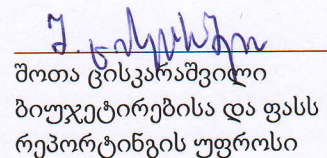 შოთა ცისკარაშვილი
ბიუჯეტირებისა და ფასს
რეპორტინგის უფროსი